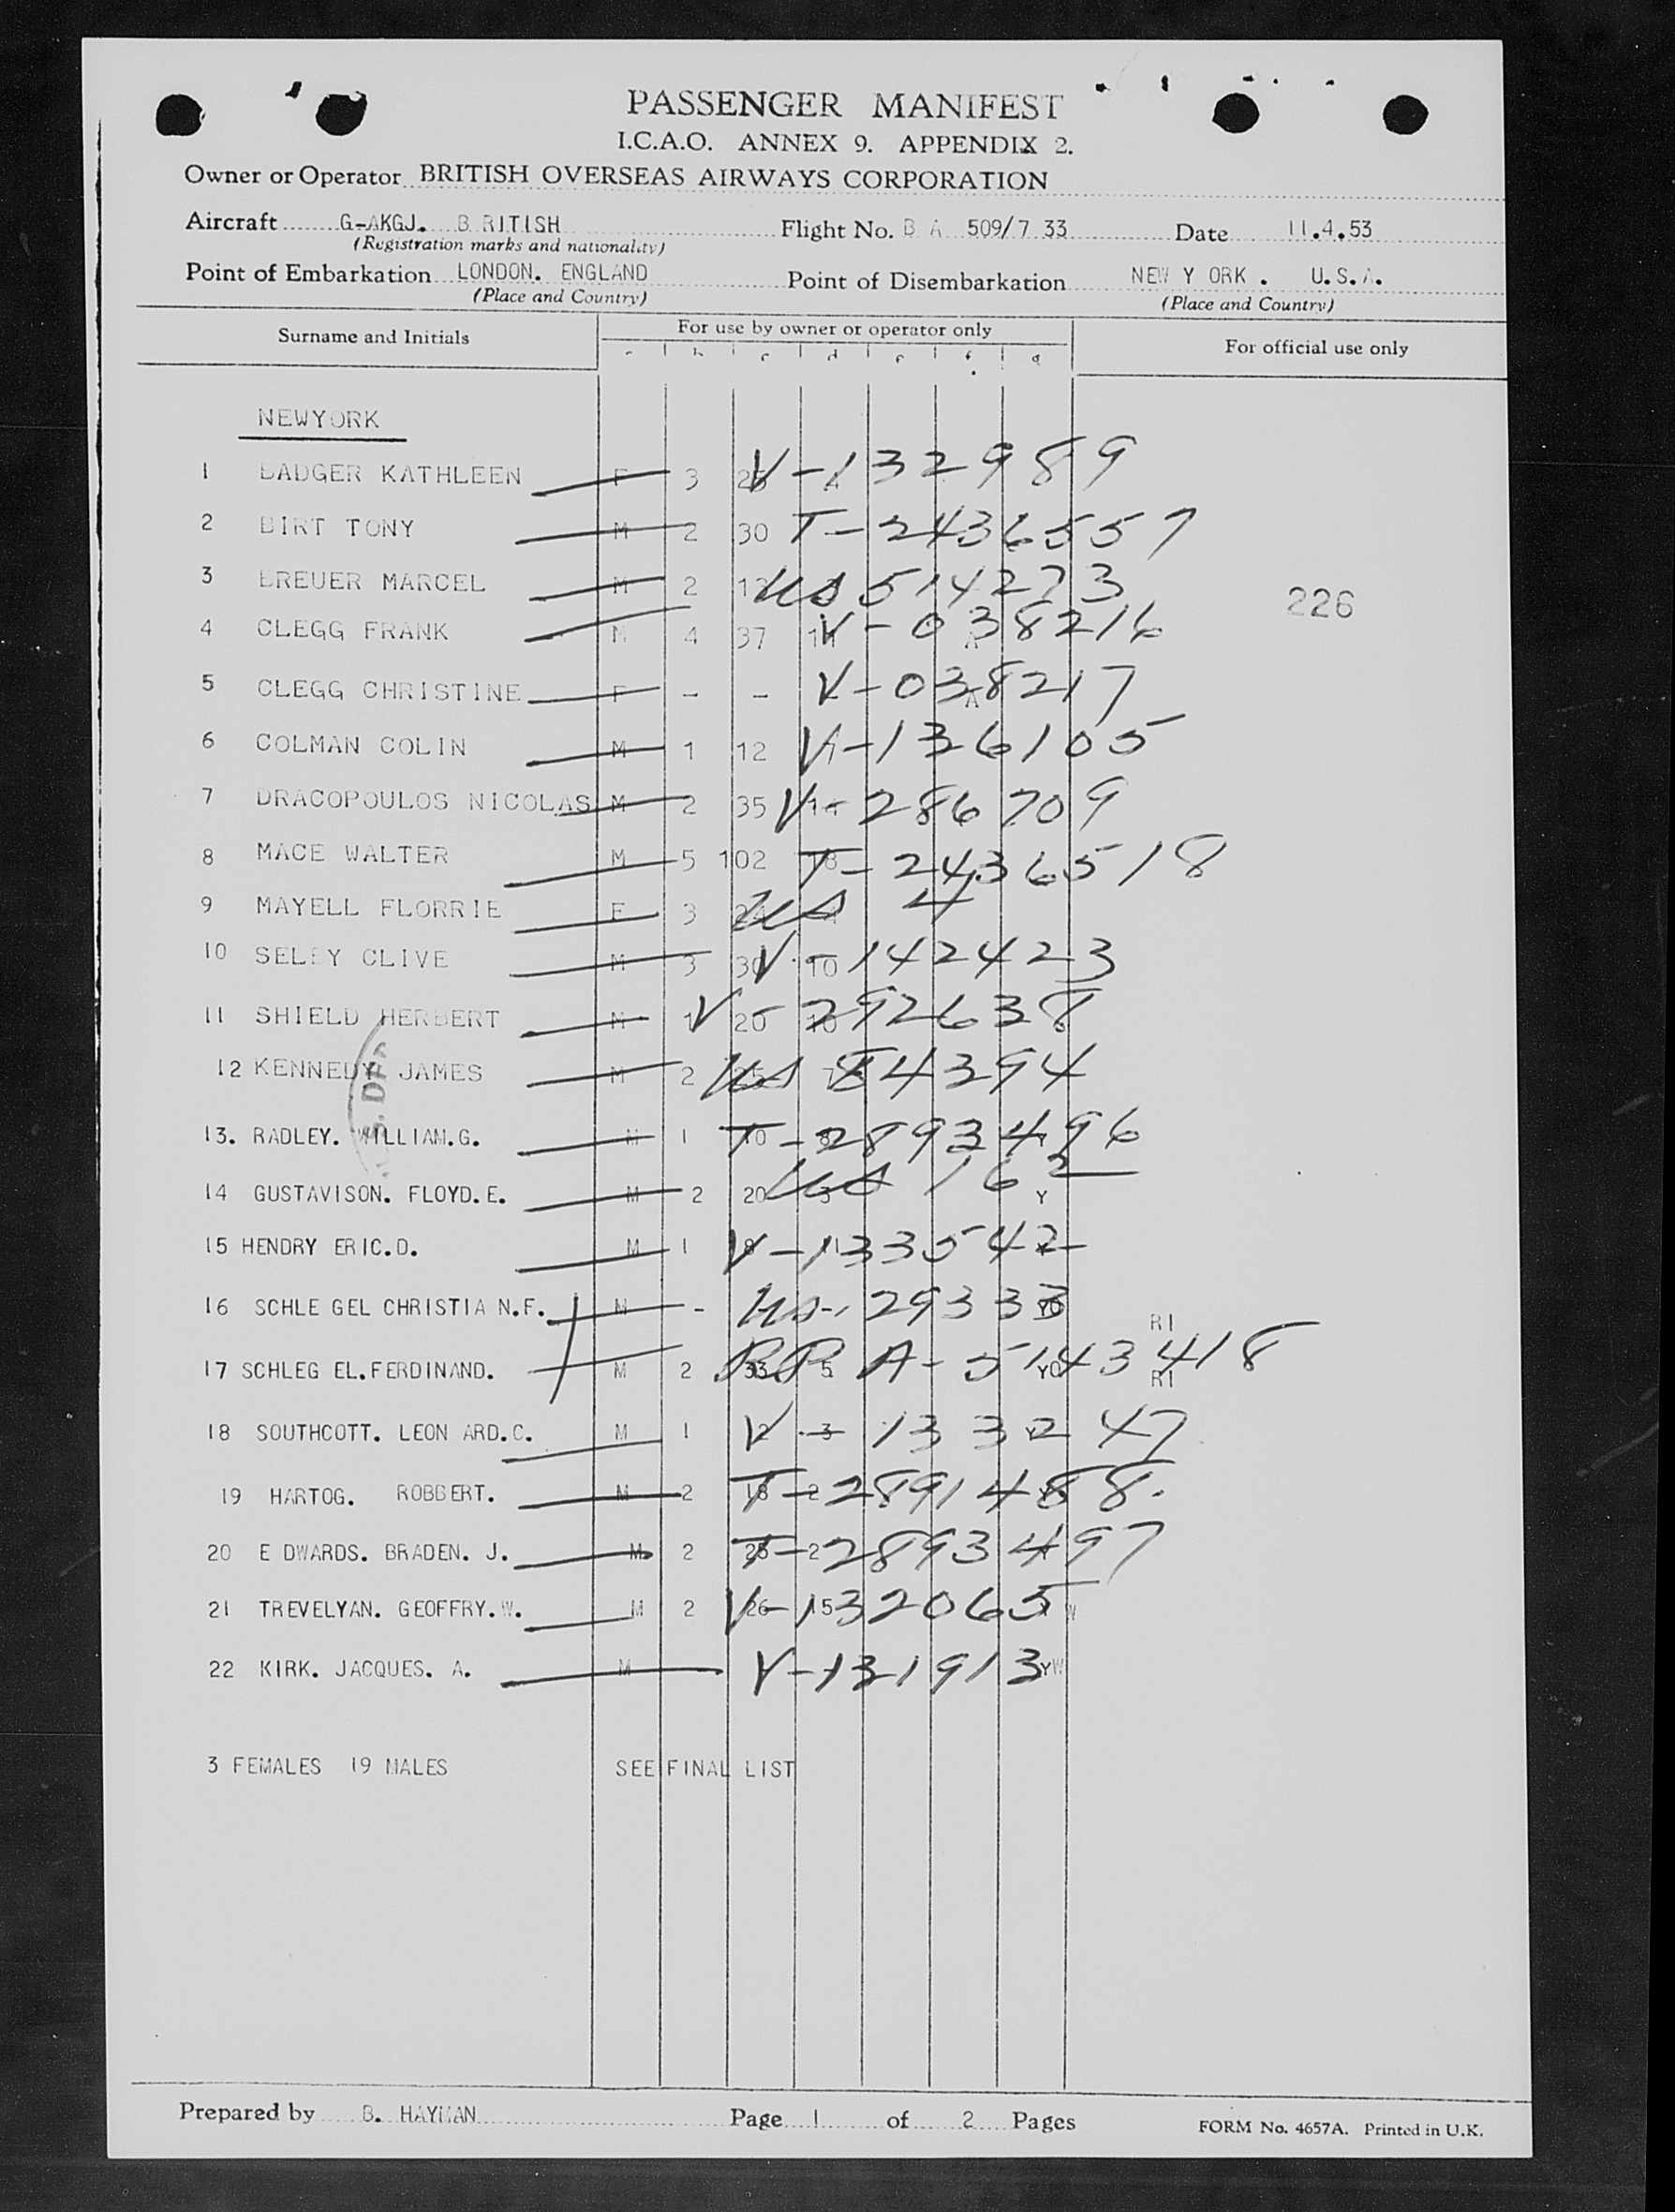 PASSENGER MANIFEST
I.C.A.O. ANNEX 9. APPENDIX 2.
Owner or Operator BRITISH OVERSEAS AIRWAYS CORPORATION
Aircraft G-AKGJ. B RITISH Flight No. B A 509/7 33 Date 11.4.53
(Registration marks and nationality)
Point of Embarkation LONDON. ENGLAND Point of Disembarkation NEW Y ORK . U.S.A.
(Place and Country) (Place and Country)
Surname and Initials For use by owner or operator only For official use only
a b c d e f g
NEWYORK
1 BADGER KATHLEEN F 3 V-132989
2 BIRT TONY M 2 30 T-2436557
3 BREUER MARCEL M 2 US 514273
226
4 CLEGG FRANK M 4 37 V-038216
5 CLEGG CHRISTINE F - - V-038217
6 COLMAN COLIN M 1 12 V-136105
7 DRACOPOULOS NICOLAS M 2 35 V-286709
8 MACE WALTER M 5 102 18 T-2436518
9 MAYELL FLORRIE F 3 US 4
10 SELBY CLIVE M 3 30 10 V-142423
11 SHIELD HERBERT M 1 20 10 V-292638
12 KENNEDY JAMES M 2 US 84394
13. RADLEY. WILLIAM.G. M 1 10 T-2893496
14 GUSTAVISON. FLOYD.E. M 2 20 3 US 162 Y
15 HENDRY ERIC.D. M 1 V-133542
16 SCHLE GEL CHRISTIA N.F. M - US-29333 YO RI
17 SCHLEG EL.FERDINAND. M 2 33 5 RP A-5143418 YO RI
18 SOUTHCOTT. LEON ARD.C. M 1 12 3 V-133247
19 HARTOG. ROBBERT. M 2 18 2 T-2891488.
20 E DWARDS. BRADEN. J. M 2 2 T-2893497
21 TREVELYAN. GEOFFRY.W. M 2 26 15 V-132065 W
22 KIRK. JACQUES. A. M V-131913 YW
3 FEMALES 19 MALES SEE FINAL LIST
Prepared by B. HAYMAN Page 1 of 2 Pages FORM No. 4657A. Printed in U.K.